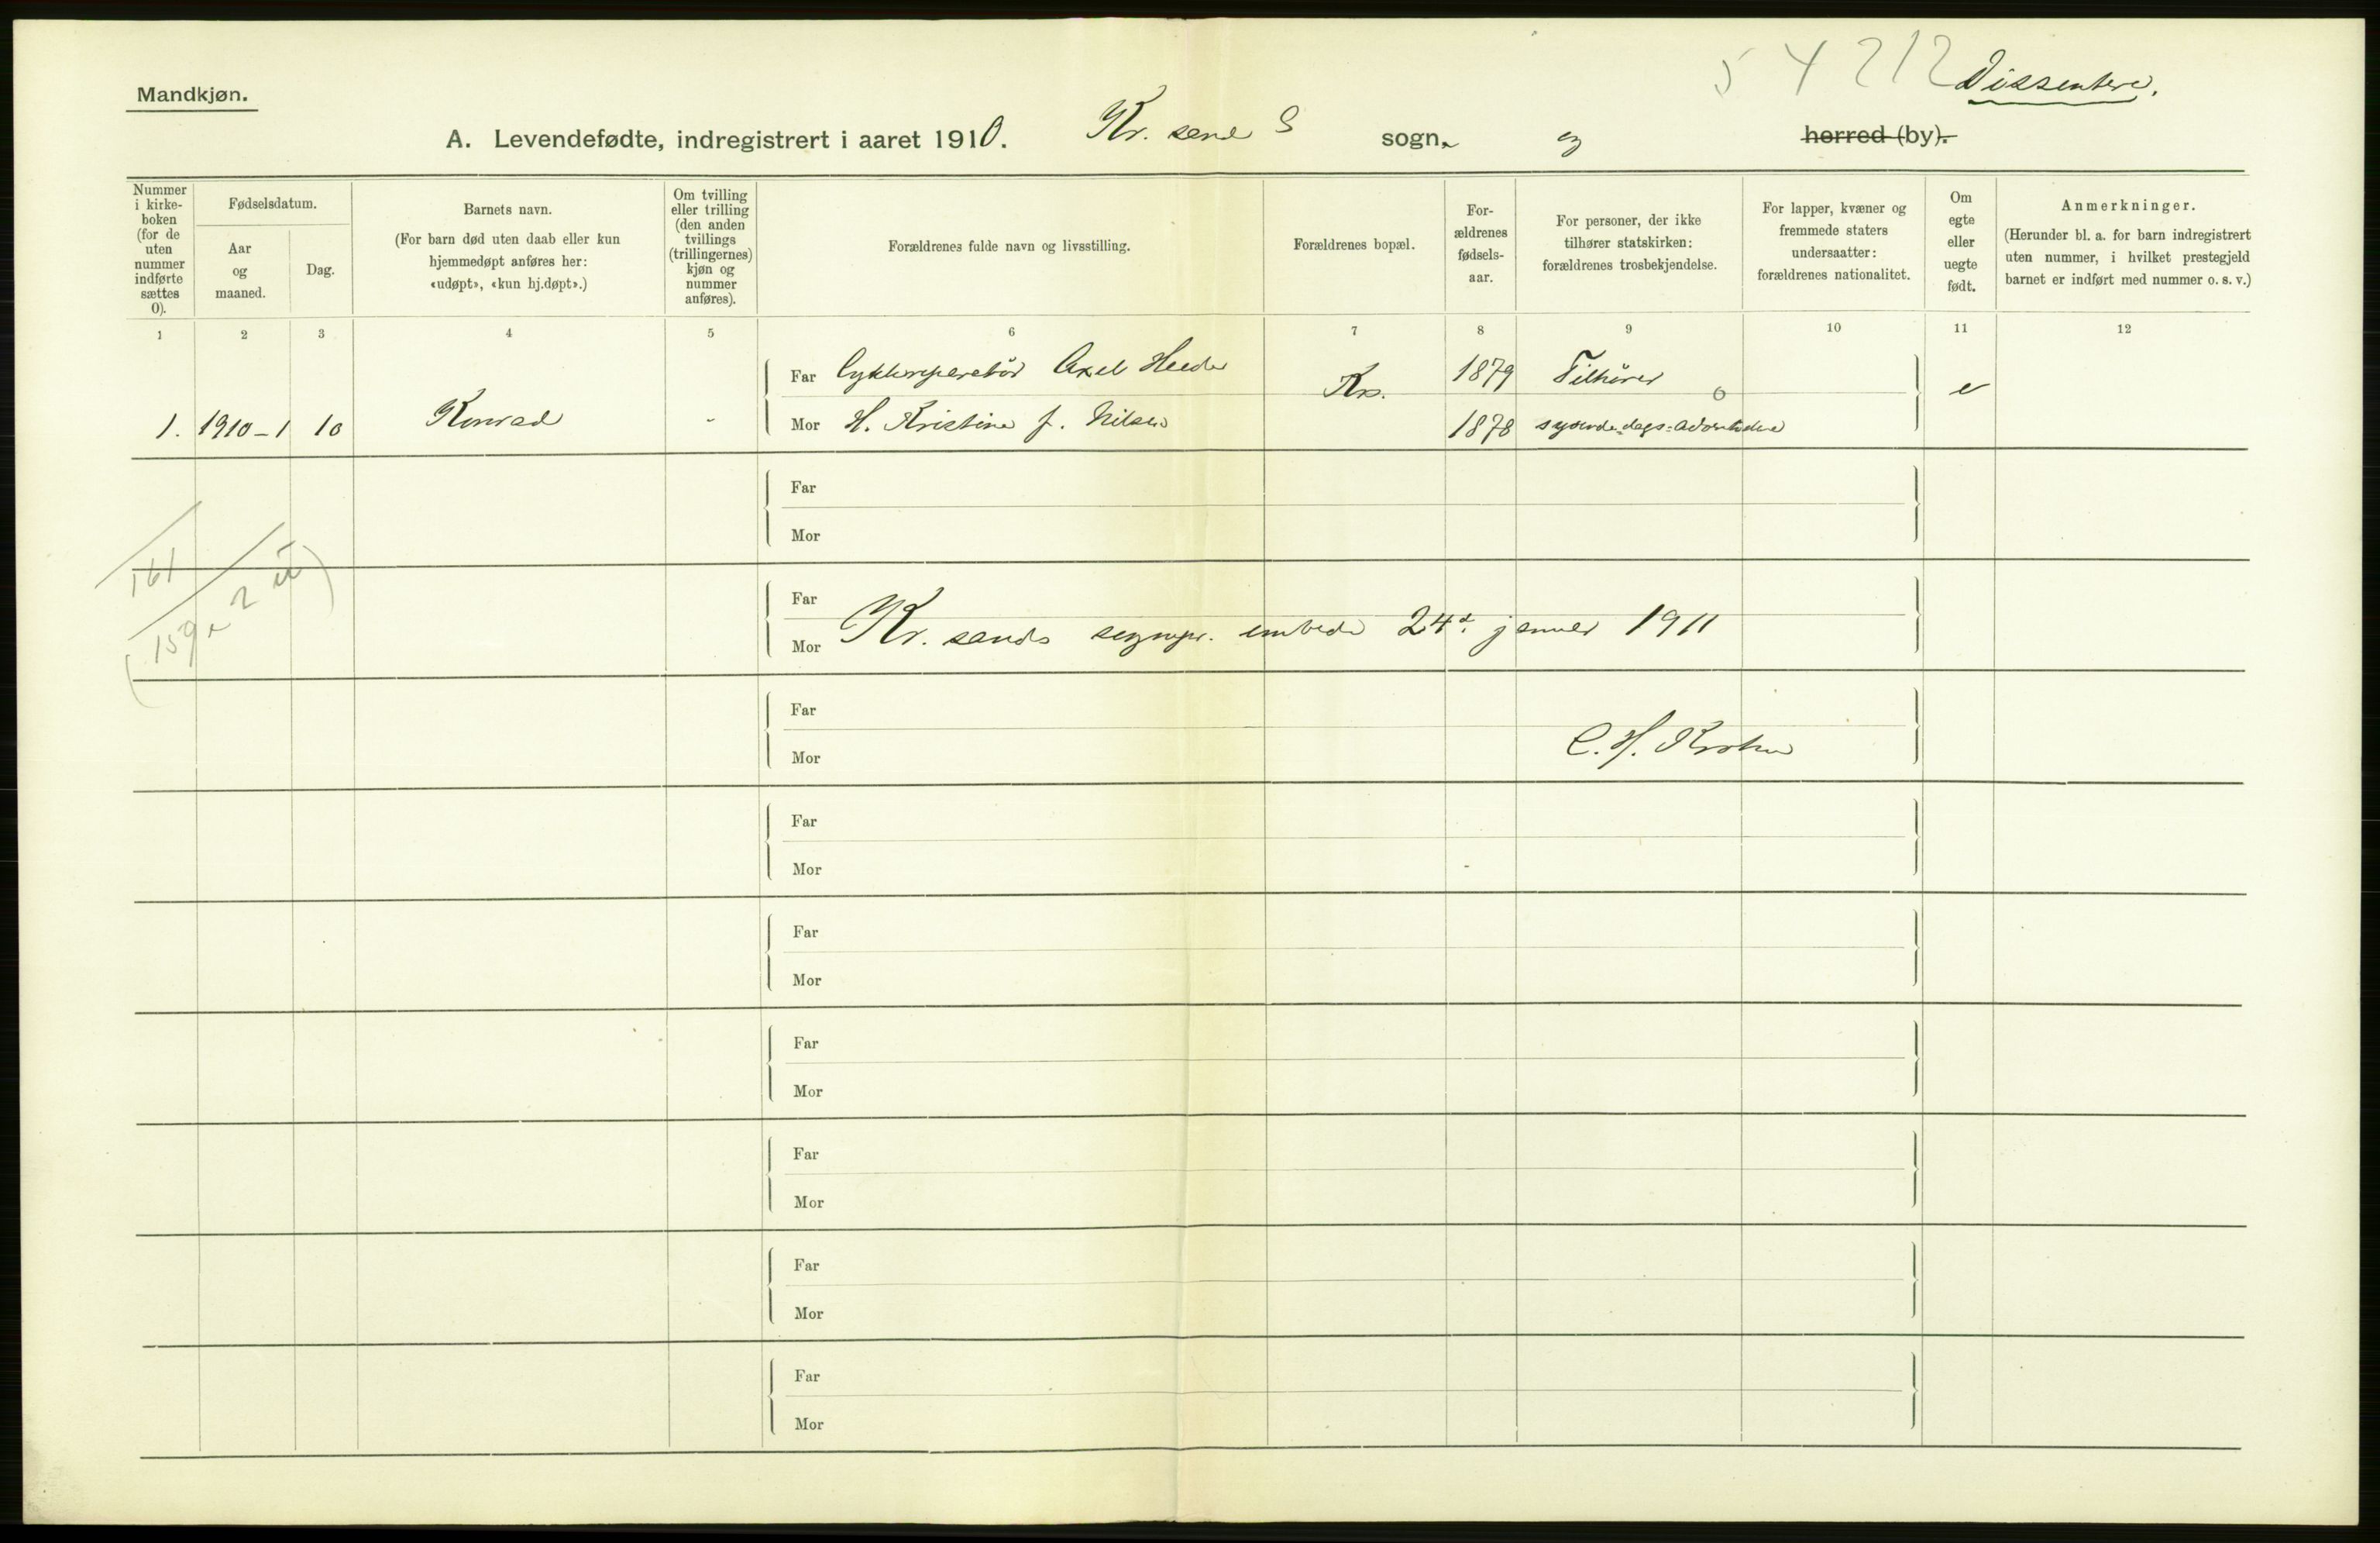 5 4 212 Dissentere.
Mandkjøn.
A. Levendefødte, indregistrert i aaret 1910. Kr. sand S sogn. og herred (by).
Nummer i kirkeboken (for de uten nummer indførte sættes 0).
Fødselsdatum.
Aar og maaned.
Dag.
Barnets navn.
(For barn død uten daab eller kun hjemmedøpt anføres her: «udøpt», «kun hj.døpt».)
Om tvilling eller trilling (den anden tvillings (trillingernes) kjøn og nummer anføres).
Forældrenes fulde navn og livsstilling.
Forældrenes bopæl.
Forældrenes fødselsaar.
For personer, der ikke tilhører statskirken: forældrenes trosbekjendelse.
For lapper, kvæner og fremmede staters undersaatter: forældrenes nationalitet.
Om egte eller uegte født.
Anmerkninger.
(Herunder bl. a. for barn indregistrert uten nummer, i hvilket prestegjeld barnet er indført med nummer o. s. v.)
1 2 3 4 5 6 7 8 9 10 11 12
Far Cykkelreparatør Axel Heeder Krs. 1879 Tilhører e
1. 1910-1 10 Konrad - Mor H. Kristine f. Nilsen 1878 syvende-dags-adventistene
Far
Mor
161
159 2 u
Far
Mor Kr. sands sognepr. embede 24d. januar 1911
Far
Mor C. H. Krohn
Far
Mor
Far
Mor
Far
Mor
Far
Mor
Far
Mor
Far
Mor